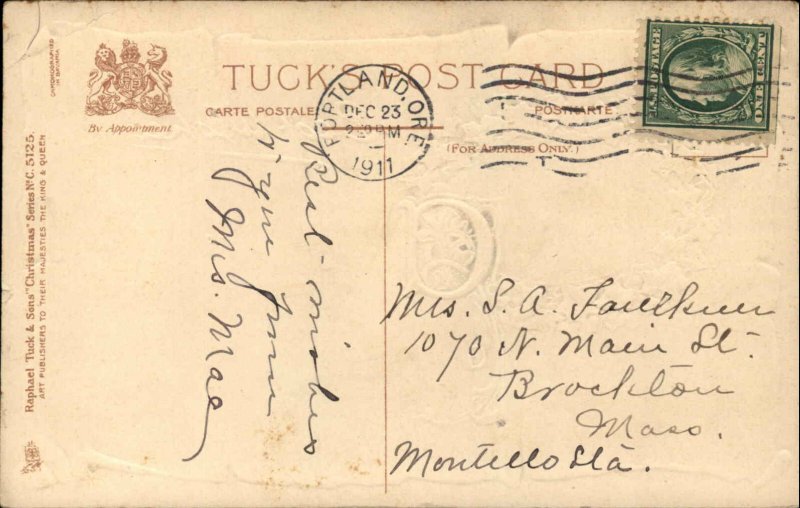 CHROMOGRAPHED
IN BAVARIA
By Appointment
TUCK'S POST CARD
CARTE POSTALE
POSTKARTE
(FOR ADDRESS ONLY.)
PORTLAND, ORE
DEC 23
1911
U.S. POSTAGE
ONE CENT
Raphael Tuck & Sons' "Christmas" Series No C. 5125.
ART PUBLISHERS TO THEIR MAJESTIES THE KING & QUEEN
Best-wishes
from
Mrs. Mae
Mrs. S. A. Faulkner
1070 N. Main St.
Brockton
Mass.
Montello Sta.